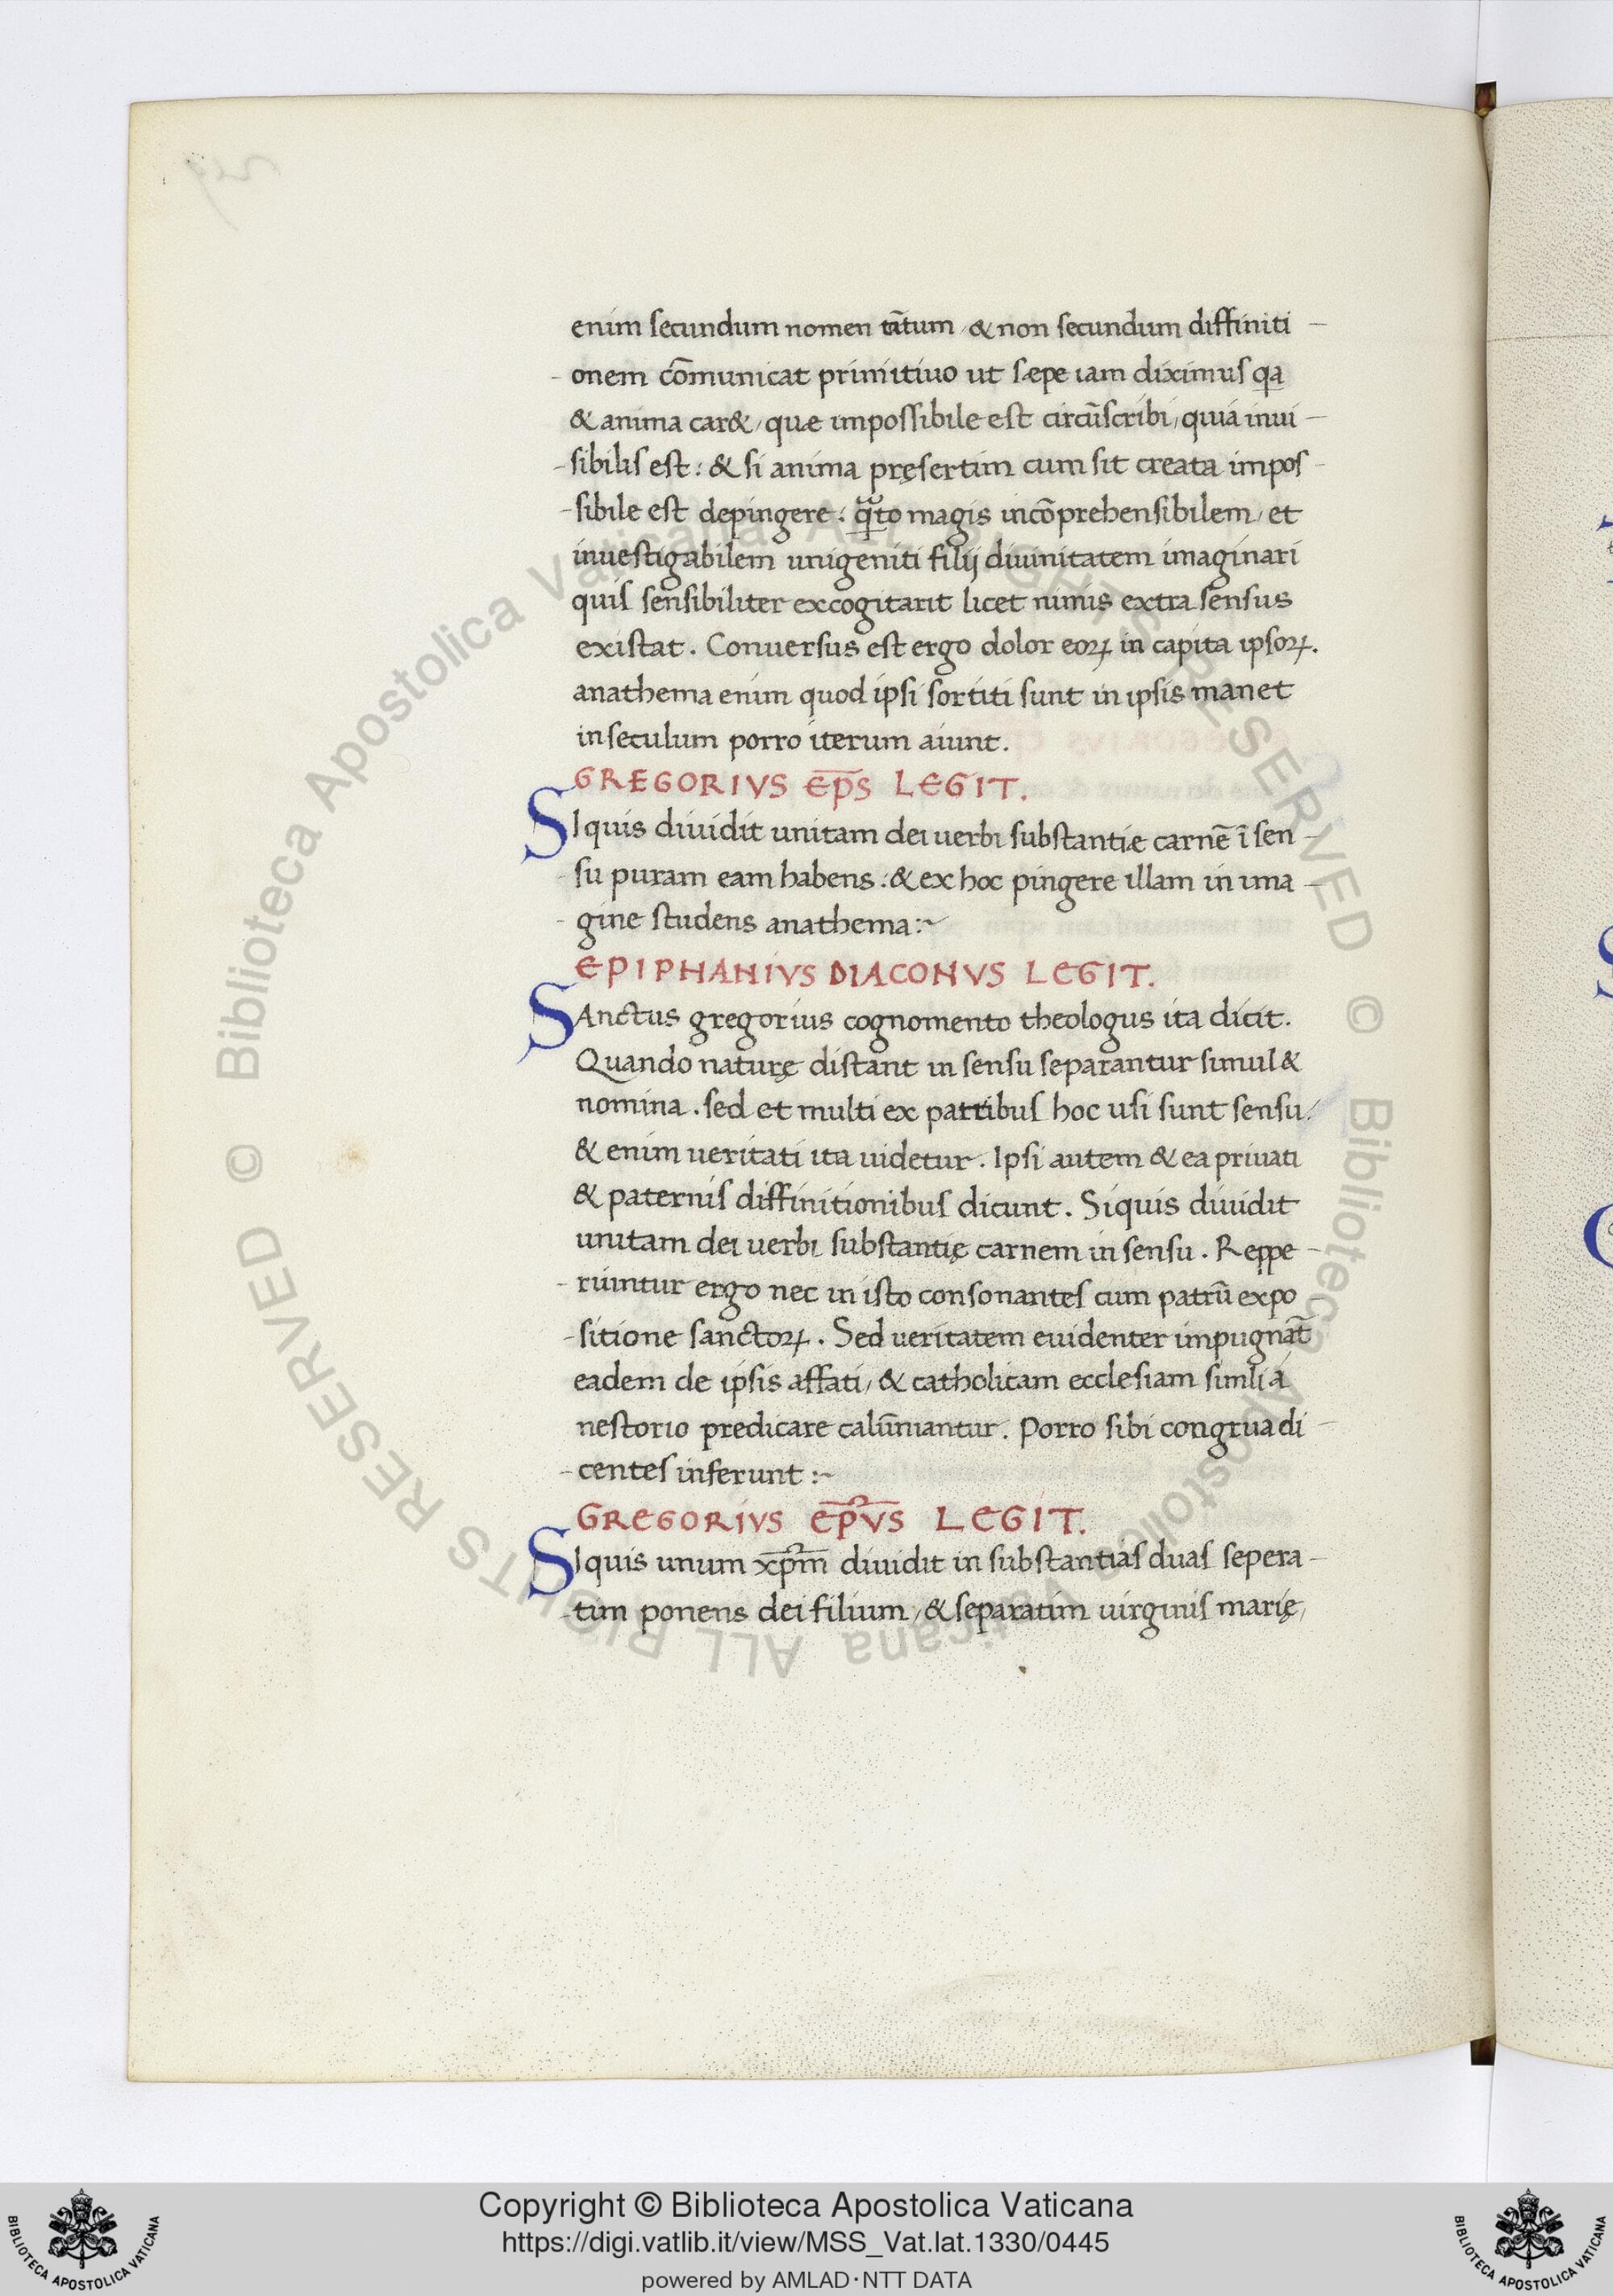 enim secundum nomen tãtum, & non secundum diffiniti-
-onem cõmunicat primitiuo ut sæpe iam diximus qa
& anima car&, quæ impossibile est circũscribi, quia inui-
-sibilis est: & si anima pręsertim cum sit creata impos-
-sibile est depingere: q̃to magis incõprehensibilem, et
inuestigabilem unigeniti filij diuinitatem imaginari
quis sensibiliter excogitarit licet nimis extra sensus
existat. Conuersus est ergo dolor eoꝝ in capita ipsoꝝ.
anathema enim quod ipsi sortiti sunt in ipsis manet
in seculum porro iterum aiunt.
GREGORIVS EP̅S LEGIT.
SIquis diuidit unitam dei uerbi substantiæ carnẽ ĩ sen-
-su puram eam habens: & ex hoc pingere illam in ima-
-gine studens anathema:~
EPIPHANIVS DIACONVS LEGIT.
SAnctus gregorius cognomento theologus ita dicit.
Quando naturę distant in sensu separantur simul &
nomina. sed et multi ex patribus hoc usi sunt sensu:
& enim ueritati ita uidetur. Ipsi autem & ea priuati
& paternis diffinitionibus dicunt. Siquis diuidit
unitam dei uerbi substantię carnem in sensu. Reppe-
-riuntur ergo nec in isto consonantes cum patrũ expo
-sitione sanctoꝝ. Sed ueritatem euidenter impugnãt
eadem de ipsis affati, & catholicam ecclesiam simli á
nestorio predicare calũniantur. Porro sibi congrua di-
-centes inferunt:~
GREGORIVS EP̅VS LEGIT.
SIquis unum xp̅m diuidit in substantias duas sepera-
-tim ponens dei filium, & separatim uirginis marię,
Copyright © Biblioteca Apostolica Vaticana
https://digi.vatlib.it/view/MSS_Vat.lat.1330/0445
powered by AMLAD·NTT DATA
BIBLIOTECA APOSTOLICA VATICANA
BIBLIOTECA APOSTOLICA VATICANA
© Biblioteca Apostolica Vaticana ALL RIGHTS RESERVED
© Biblioteca Apostolica Vaticana ALL RIGHTS RESERVED